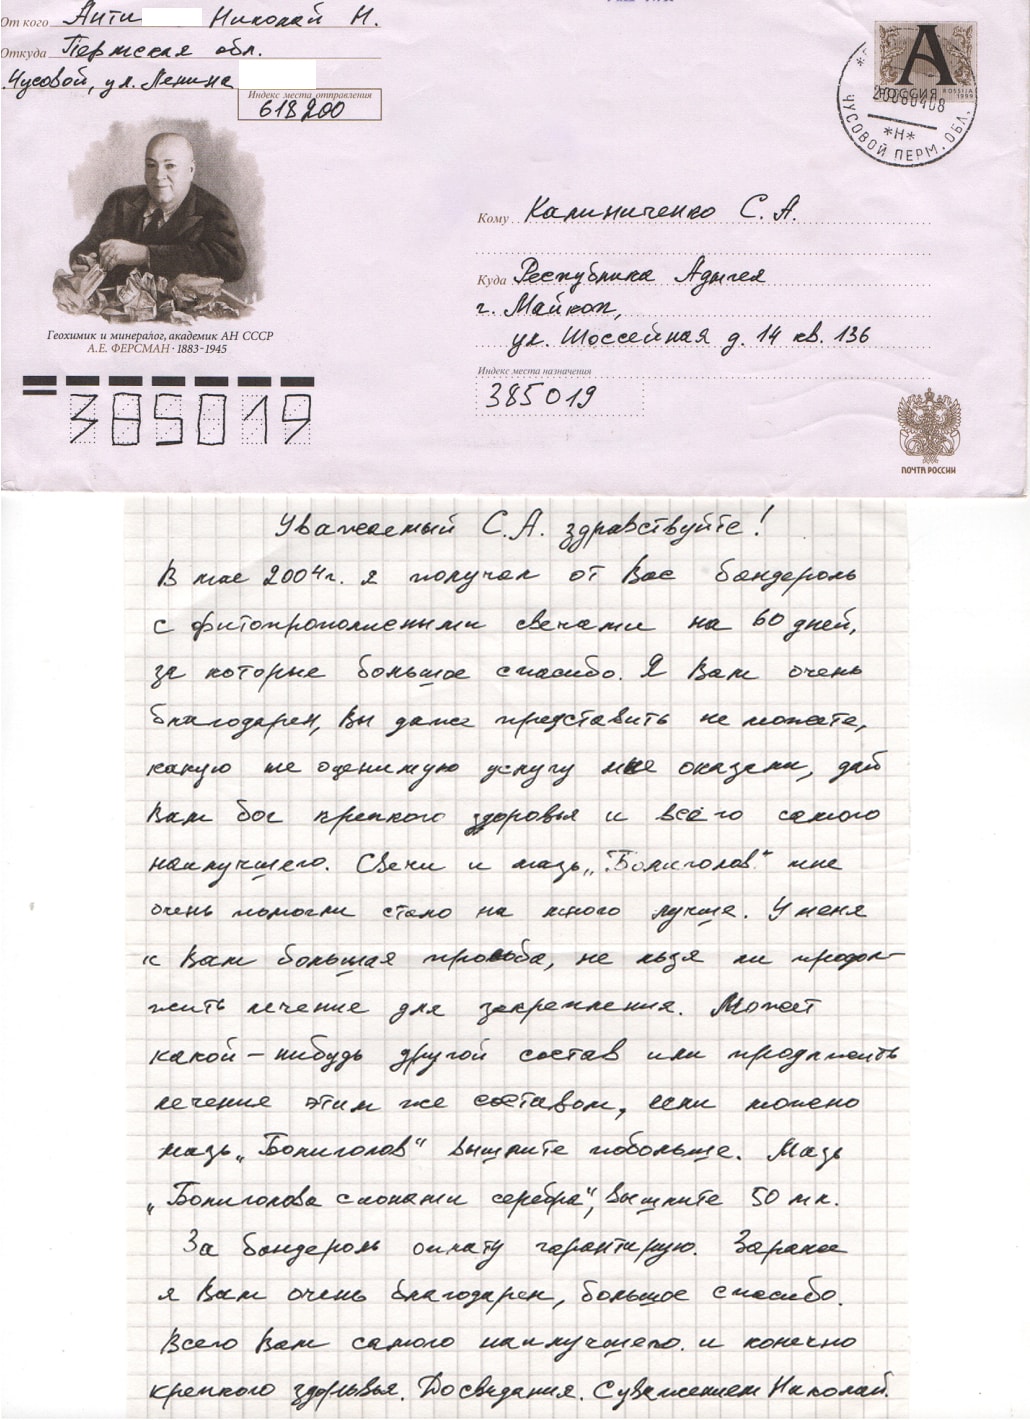 От кого Анти Николай Н.
Откуда Пермская обл.
г. Чусовой, ул. Ленина
Индекс места отправления
618200
А
РОССИЯ
ROSSIJA
1999
ЧУСОВОЙ ПЕРМ. ОБЛ.
*Н*
Геохимик и минералог, академик АН СССР
А.Е. ФЕРСМАН · 1883-1945
Кому Калиниченко С.А.
Куда Республика Адыгея
г. Майкоп,
ул. Шоссейная д. 14 кв. 136
Индекс места назначения
385019
385019
ПОЧТА РОССИИ
Уважаемый С.А. здравствуйте!
В мае 2004г. я получал от Вас бандероль
с фитопрополисными свечами на 60 дней,
за которые большое спасибо. Я Вам очень
благодарен, Вы даже представить не можете,
какую не оценимую услугу мне оказали, дай
Вам бог крепкого здоровья и всего самого
наилучшего. Свечи и мазь „Болиголов" мне
очень помогли стало на много лучше. У меня
к Вам большая прозьба, не льзя ли продол-
жить лечение для закрепления. Может
какой-нибудь другой состав или продлжить
лечение этим же составом, если можно
мазь „Болиголов" вышлите побольше. Мазь
„Болиголова с ионами серебра", вышлите 50 мл.
За бандероль оплату гарантирую. Заранее
я Вам очень благодарен, большое спасибо.
Всего Вам самого наилучшего и конечно
крепкого здоровья. Досвидания. С уважением Николай.